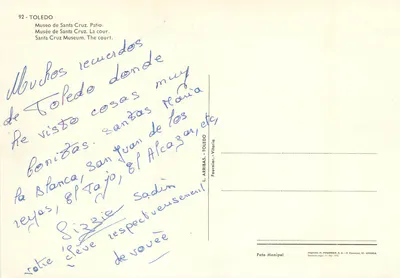 92 - TOLEDO
Museo de Santa Cruz. Patio.
Musée de Santa Cruz. La cour.
Santa Cruz Museum. The court.
Muchos recuerdos
de Toledo donde
he visto cosas muy
bonitas. Santas Maria
la Blanca, San Juan de los
reyes, El Tajo, El Alcazar, etc,
Lizzie
élève respectueusement
dévouée
L. ARRIBAS. - TOLEDO
Foto Municipal